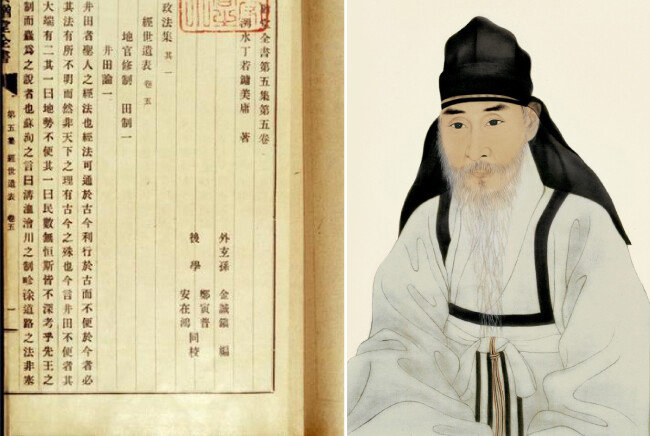 堂全書第五集第五卷
洌水丁若鏞美庸 著
外玄孫 金誠鎭 編
後學 鄭寅普
安在鴻 同校
政法集 其一
經世遺表 卷五
地官修制 田制一
井田論一
井田者聖人之經法也經法可通於古今利行於古而不便於今者必
其法有所不明而然非天下之理有古今之殊也今言井田不便者其
大端有二其一曰地勢不便其一曰民數無恒斯皆不深考乎先王之
制而爲之說者也蘇洵之言曰溝洫澮川之制畛涂道路之法非塞
猶堂全書 第五集 經世遺表 卷五 一